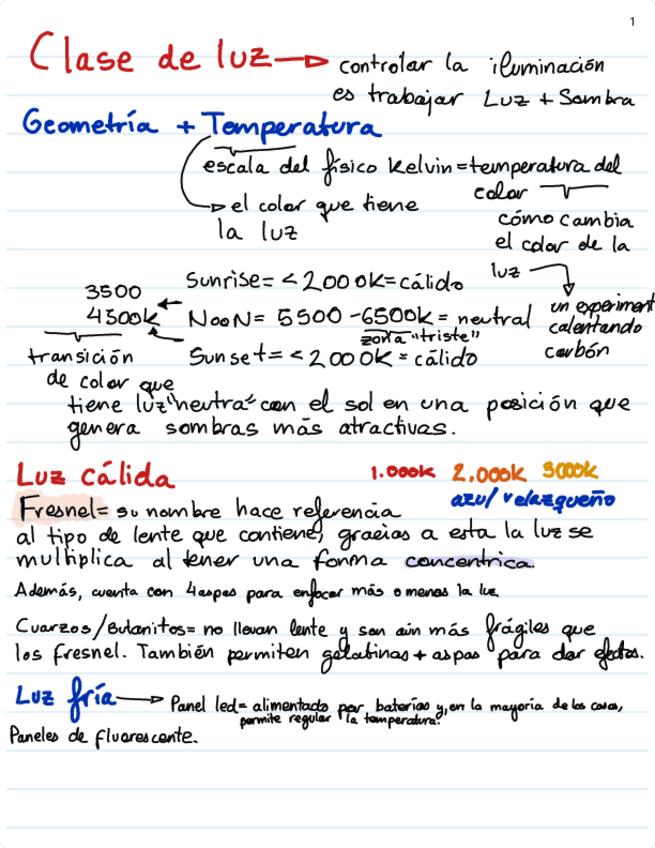 1
Clase de luz → controlar la iluminación
es trabajar Luz + Sombra
Geometría + Temperatura
escala del físico Kelvin = temperatura del
color
→ el color que tiene
la luz
cómo cambia
el color de la
luz
un experiment
calentando
carbón
Sunrise = < 2000k = cálido
3500
4500k
NooN = 5500 - 6500k = neutral
zona "triste"
Sunset = < 2000k = cálido
transición
de color que
tiene luz "neutra" con el sol en una posición que
genera sombras más atractivas.
Luz cálida
1.000k 2.000k 3000k
azul velazqueño
Fresnel = su nombre hace referencia
al tipo de lente que contiene, gracias a esta la luz se
multiplica al tener una forma concentrica.
Además, cuenta con 4 aspas para enfocar más o menos la luz
Cuarzos/Butanitos = no llevan lente y son aún más frágiles que
los fresnel. También permiten gelatinas + aspas para dar efectos.
Luz fría → Panel led = alimentado por baterías y, en la mayoría de los casos,
permite regular la temperatura.
Paneles de fluorescente.